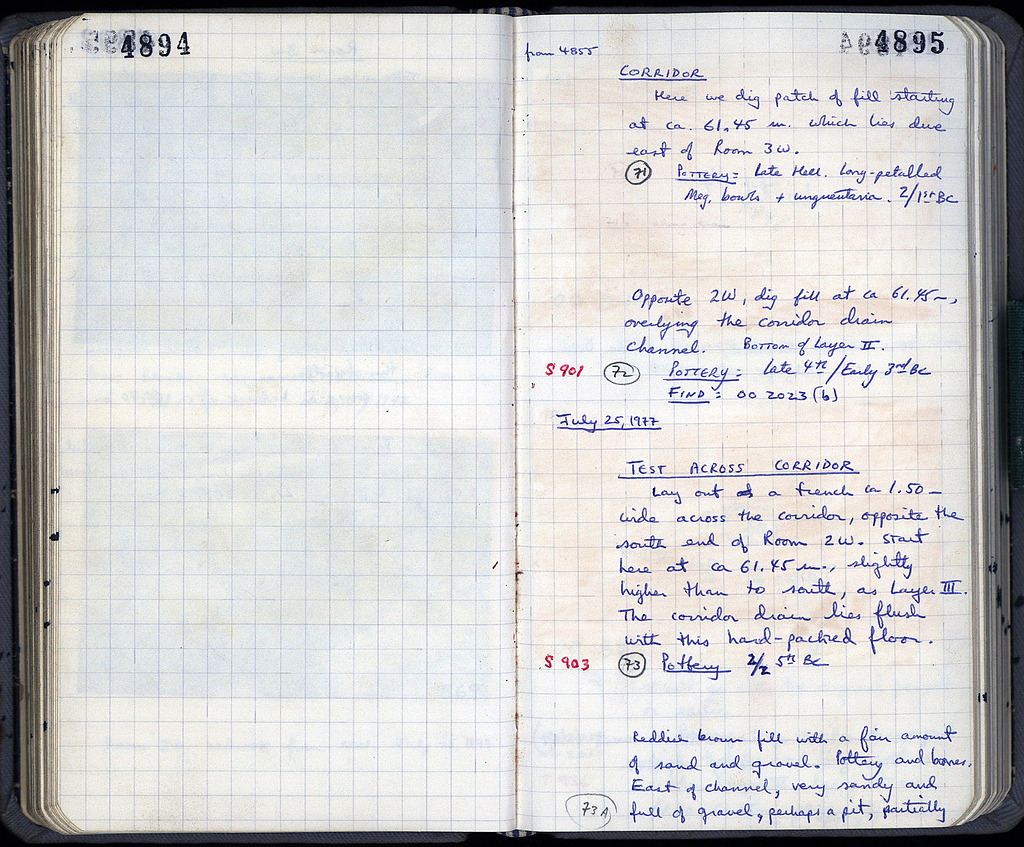 4894
4895
from 4855
CORRIDOR
Here we dig patch of fill starting
at ca. 61.45 m. which lies due
east of Room 3W.
71 POTTERY: Late Hell. Long-petalled
Meg. bowls + unguentaria. 2/1st BC
Opposite 2W, dig fill at ca 61.45 m,
overlying the corridor drain
channel. BOTTOM of Layer II.
S 901 72 POTTERY: Late 4th/Early 3rd BC
FIND: 00 2023 (b)
July 25, 1977
TEST ACROSS CORRIDOR
Lay out a trench ca 1.50 m
wide across the corridor, opposite the
south end of Room 2W. Start
here at ca 61.45 m., slightly
higher than to south, as Layer III.
The corridor drain lies flush
with this hard-packed floor.
S 903 73 Pottery 2/2 5th BC
Reddish brown fill with a fair amount
of sand and gravel. Pottery and bones.
East of channel, very sandy and
73A full of gravel, perhaps a pit, partially